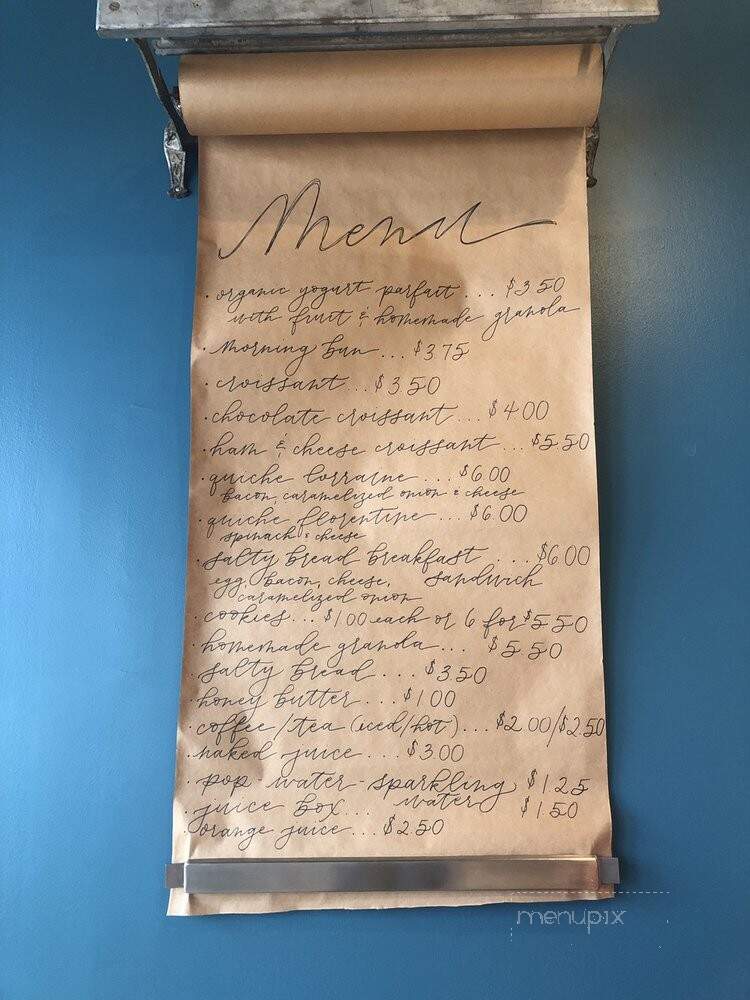 Menu
· organic yogurt parfait ... $3.50
with fruit & homemade granola
· morning bun ... $3.75
· croissant ... $3.50
· chocolate croissant ... $4.00
· ham & cheese croissant ... $5.50
· quiche lorraine ... $6.00
bacon, caramelized onion & cheese
· quiche florentine ... $6.00
spinach & cheese
· salty bread breakfast ... $6.00
egg, bacon, cheese, sandwich
caramelized onion
· cookies ... $1.00 each or 6 for $5.50
· homemade granola ... $5.50
· salty bread ... $3.50
· honey butter ... $1.00
· coffee/tea (iced/hot) ... $2.00/$2.50
· naked juice ... $3.00
· pop-water-sparkling $1.25
· juice box ... water $1.50
· orange juice ... $2.50
menupix